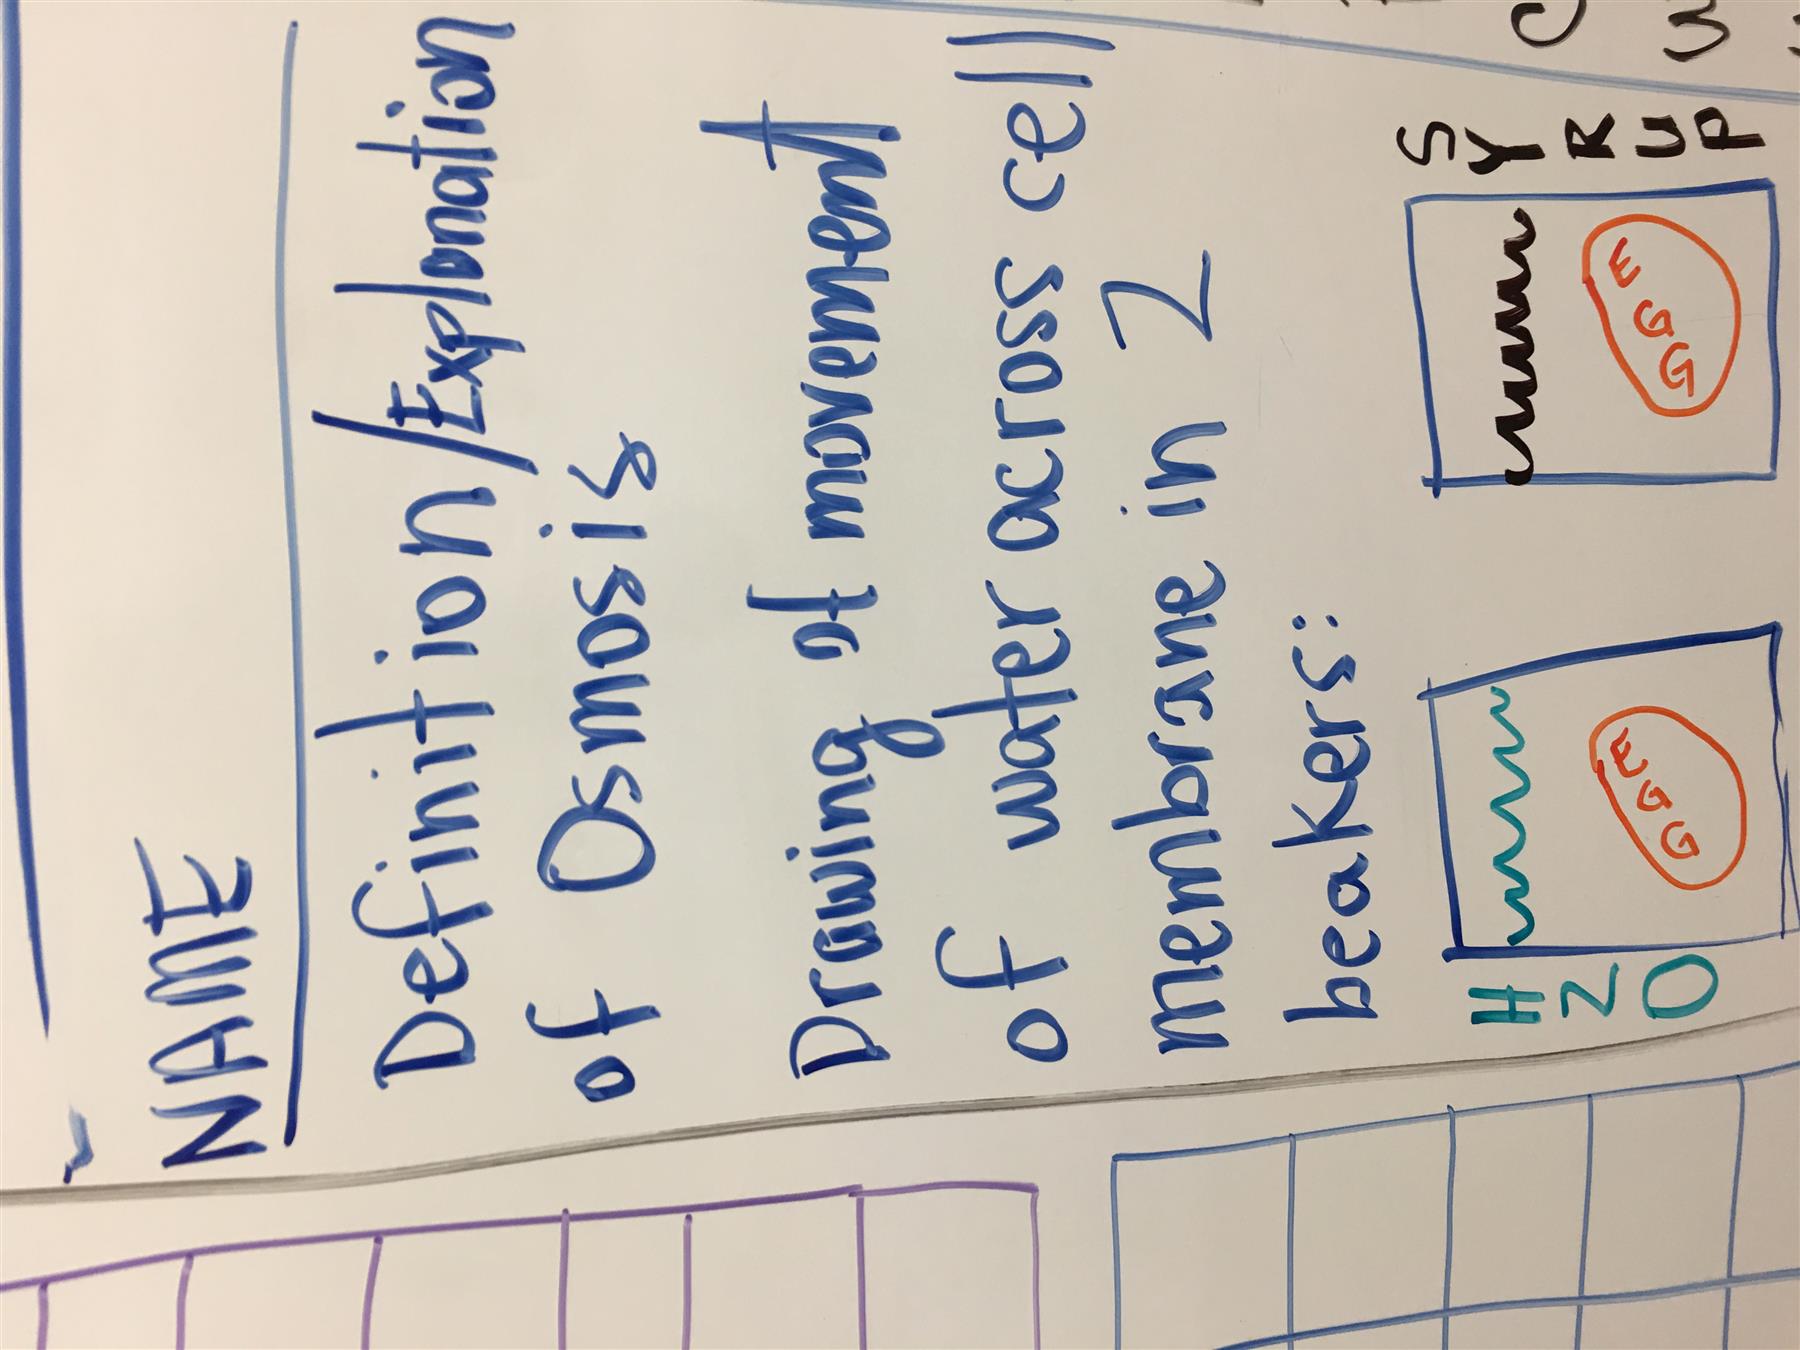 NAME
Definition/Explanation
of Osmosis
Drawing of movement
of water across cell
membrane in 2
beakers:
H2O
EGG
EGG
SYRUP